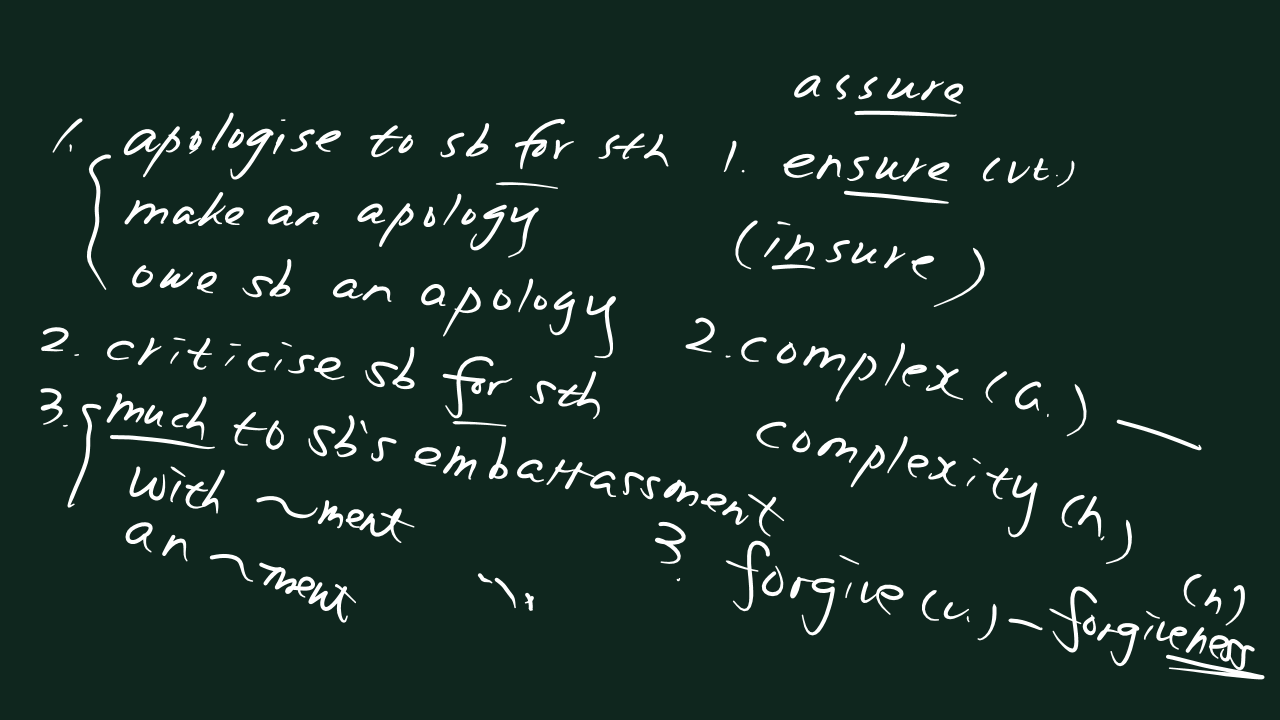 1. apologise to sb for sth
make an apology
owe sb an apology
2. criticise sb for sth
3. much to sb's embarrassment
with ~ment
an ~ment
assure
1. ensure (vt.)
(insure)
2. complex (a.) —
complexity (n.)
3. forgive (v.) — forgiveness (n)